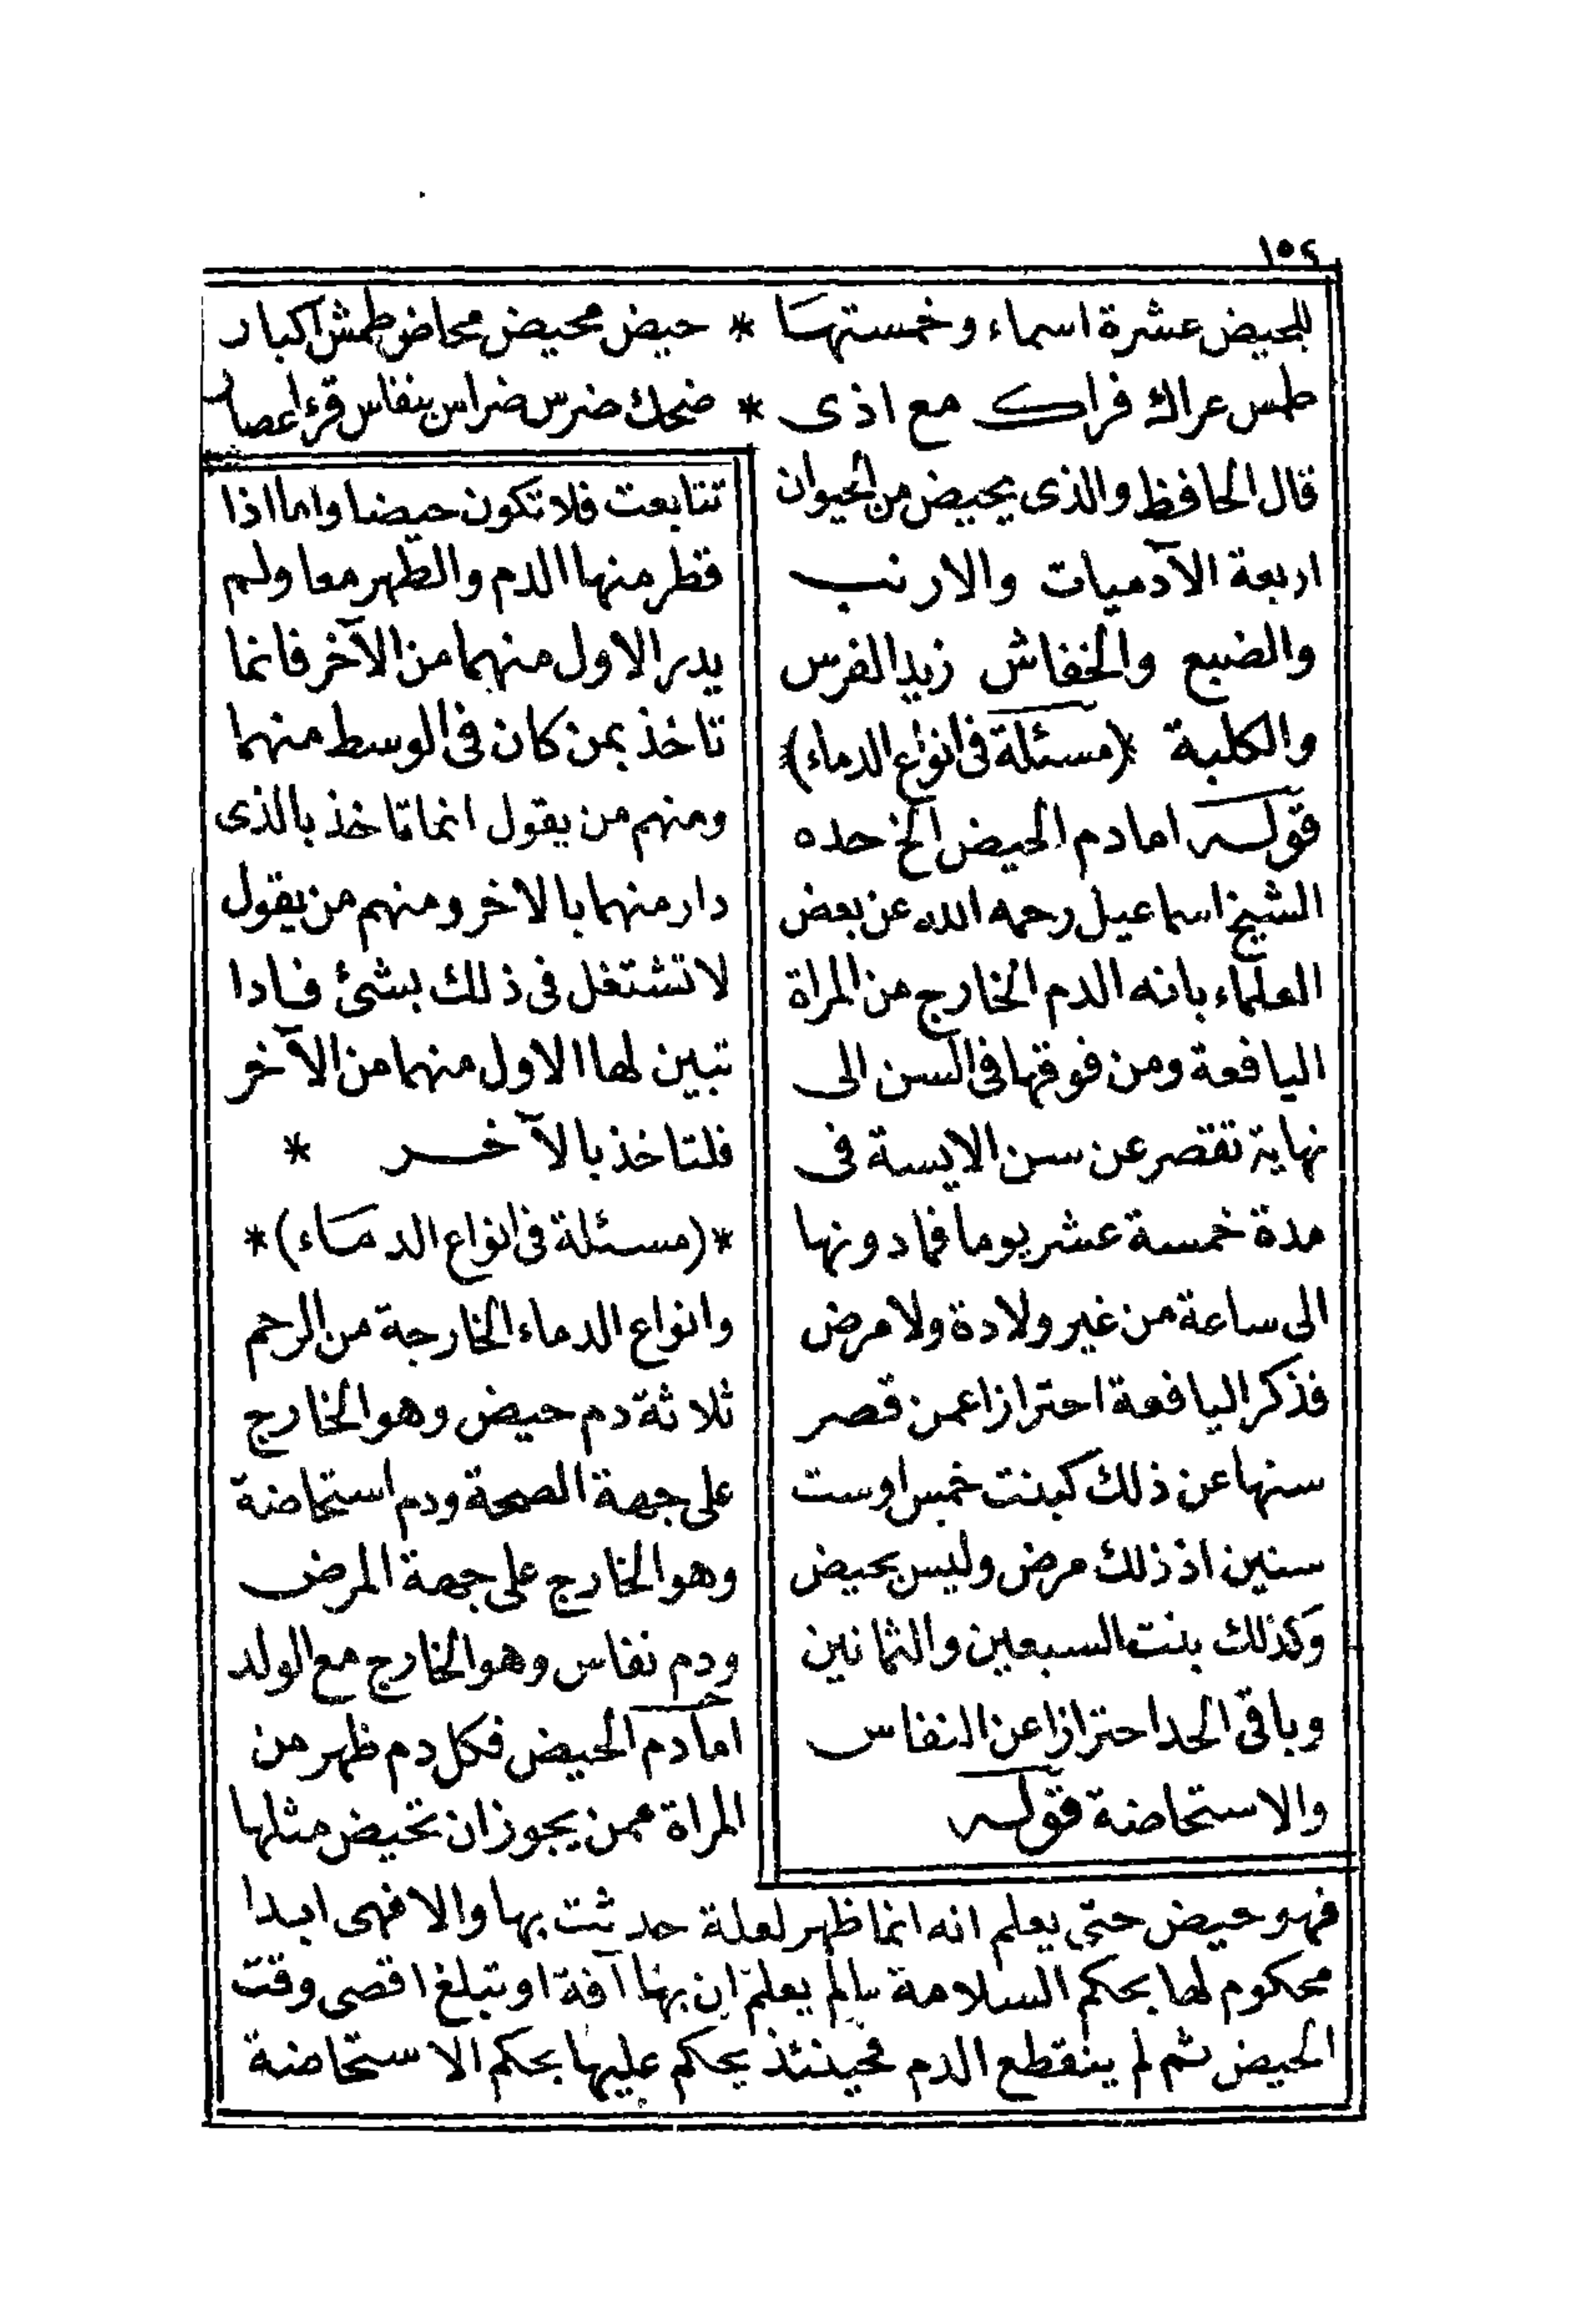 ١٥٤
للحيض عشرة اسماء وخمستها * حيض محيض محاض طمث اكبار
طمس عراك فراك مع اذى * ضحك ضرس ضراس نفاس قرء اعصار
قال الحافظ والذى يحيض من الحيوان
اربعة الآدميات والارنب
والضبع والخفاش زيد الفرس
والكلبة *(مسئلة فى انواع الدماء)*
قوله اما دم الحيض الخ حده
الشيخ اسماعيل رحمه الله عن بعض
العلماء بانه الدم الخارج من المراة
اليافعة ومن فوقها فى السن الى
نهاية تقصر عن سن الايسة فى
مدة خمسة عشر يوما فما دونها
الى ساعة من غير ولادة ولا مرض
فذكر اليافعة احترازا عمن قصر
سنها عن ذلك كبنت خمس اوست
سنين اذ ذلك مرض وليس بحيض
وكذلك بنت السبعين والثمانين
وباقى الحد احترازا عن النفاس
والاستحاضة قوله
تتابعت فلا تكون حيضا واما اذا
قطر منها الدم والطهر معا ولم
يدر الاول منهما من الآخر فانما
تاخذ بمن كان فى الوسط منهما
ومنهم من يقول انما تاخذ بالذى
دار منهما بالاخر ومنهم من يقول
لا تشتغل فى ذلك بشئ فادا
تبين لها الاول منهما من الآخر
فلتاخذ بالآخر *
*(مسئلة فى انواع الدماء)*
وانواع الدماء الخارجة من الرحم
ثلاثة دم حيض وهو الخارج
على جهة الصحة ودم استحاضة
وهو الخارج على جهة المرض
ودم نفاس وهو الخارج مع الولد
اما دم الحيض فكل دم ظهر من
المراة ممن يجوز ان تحيض مثلها
فهو حيض حتى يعلم انه انما ظهر لعلة حدثت بها والا فهى ابدا
محكوم لها بحكم السلامة مالم يعلم ان بها آفة او تبلغ اقصى وقت
الحيض ثم لم ينقطع الدم فحينئذ يحكم عليها بحكم الاستحاضة